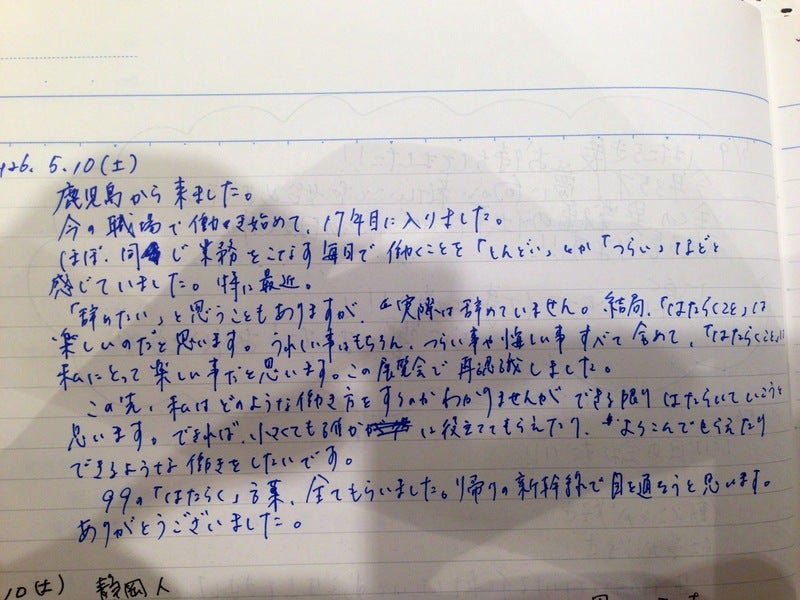 26. 5.10(土)
鹿児島から来ました。
今の職場で働き始めて、17年目に入りました。
ほぼ、同じ業務をこなす毎日で働くことを「しんどい」とか「つらい」などと
感じていました。特に最近。
「辞めたい」と思うこともありますが、実際は辞めていません。結局、「はたらくこと」は
楽しいのだと思います。うれしい事はもちろん、つらい事や悔しい事すべて含めて、「はたらくこと」は
私にとって楽しい事だと思います。この展覧会で再認識しました。
この先、私はどのような働き方をするのかわかりませんができる限りはたらいていこうと
思います。できれば、小さくても誰かに役立ててもらえたり、よろこんでもらえたり
できるような働きをしたいです。
99の「はたらく」言葉、全てもらいました。帰りの新幹線で目を通そうと思います。
ありがとうございました。
10(土) 静岡人